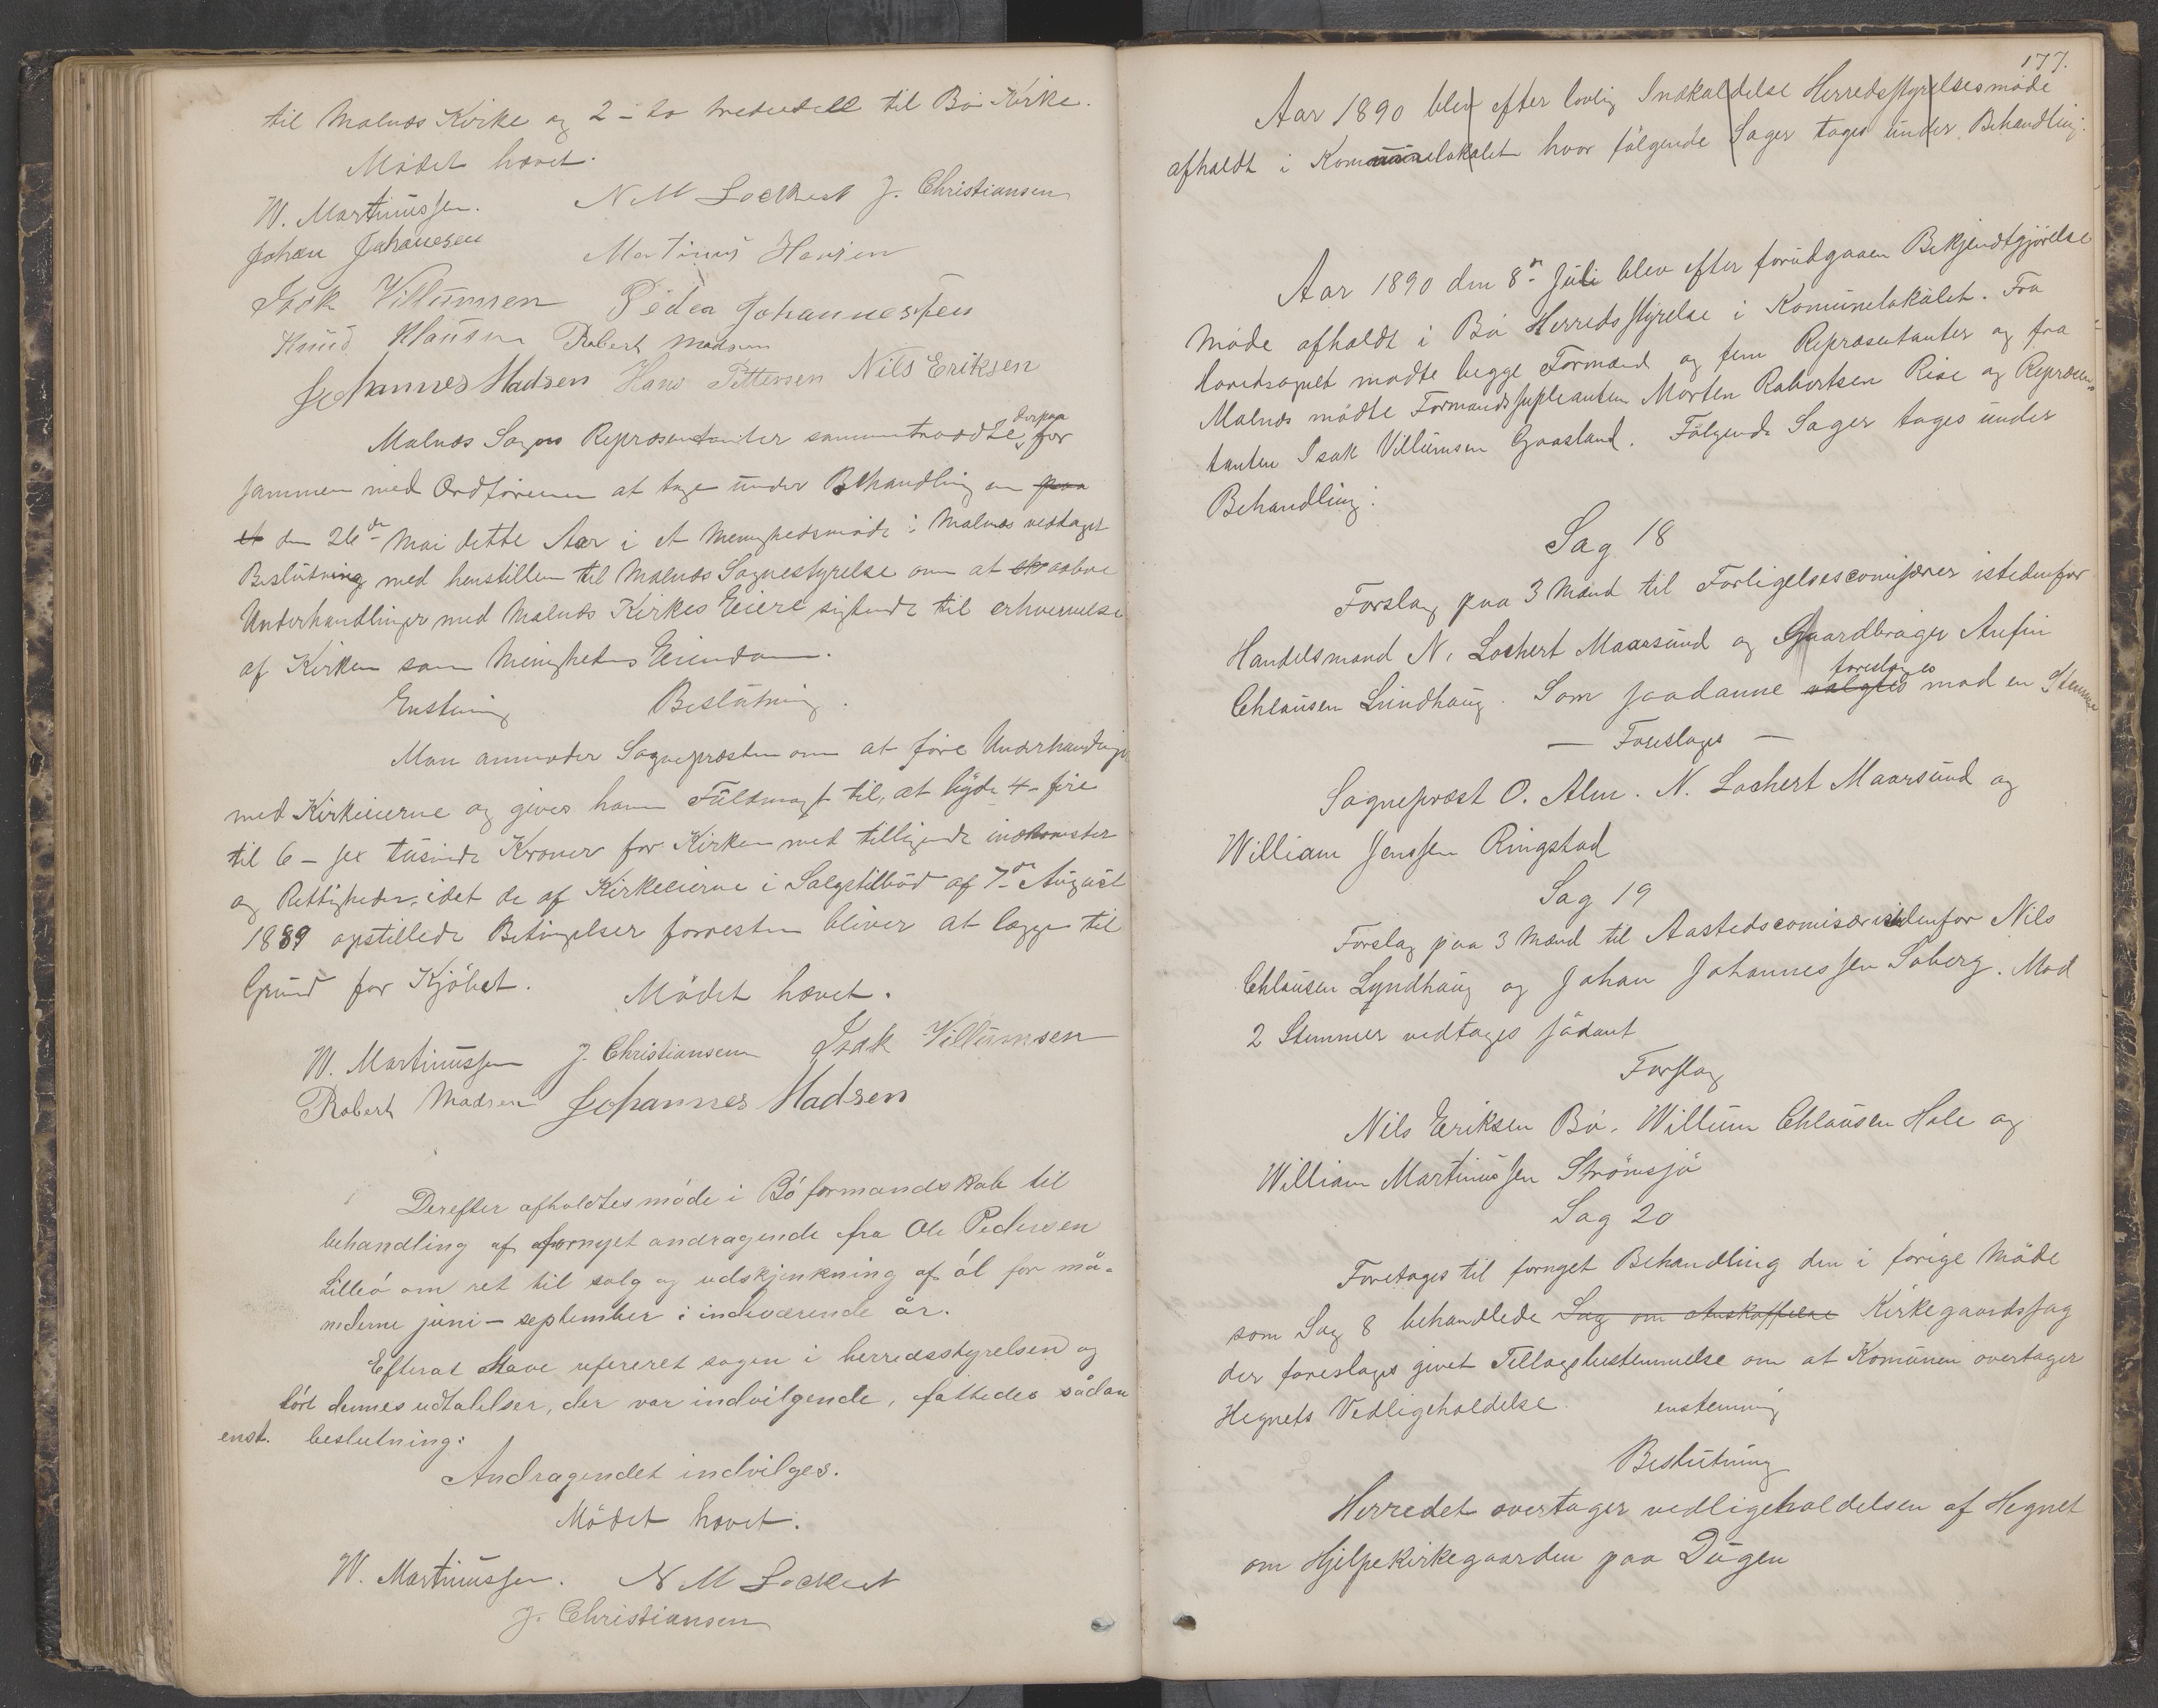 til Malnæs Kirke og 2 - to trededell til Bö Kirke.
Mödet hævet.
W. Martinussen. N M Lockert J. Christiansen
Johan Johanesen Martinus Hansen
Isak Villumsen Peder Johannessen
Knud Klausen Robert Madsen
Johannes Madsen Hans Pettersen Nils Eriksen
Malnæs Sogns Repræsentanter sammentraadte derpaa for
sammen med Ordföreren at tage under Behandling en paa
et den 26de Mai dette Aar i et Menighedsmöde i Malnæs vedtaget
Beslutning med henstillen til Malnæs Sognestyrelse om at aabne
Underhandlinger med Malnæs Kirkes Eiere sigtende til erhvervelse
af Kirken som Menighedens Eiendom.
Enstemig Beslutning.
Man anmoder Sognepræsten om at före Underhandlinger
med Kirkeeierne og gives ham Fuldmagt til, at byde 4 - fire
til 6 - sex tusinde Kroner for Kirken med tilligende indkomster
og Rettigheder, idet de af Kirkeeierne i Salgstilbud af 7de August
1889 opstillede Betingelser forresten bliver at lægge til
Grund for Kjöbet. Mödet hævet.
W. Martinussen J. Christiansen Isak Villumsen
Robert Madsen Johannes Madsen
Derefter afholdtes möde i Bö formandskab til
behandling af fornyet andragende fra Ole Pedersen
Lilleö om ret til salg og udskjænkning af öl for må-
nederne juni - september i indeværende år.
Efterat have refereret sagen i herredsstyrelsen og
hört dennes udtalelser, der var indvilgende, fattedes sådan
enst. beslutning:
Andragendet indvilges.
Mödet hævet.
W. Martinussen. N M Lockert
J. Christiansen
177.
Aar 1890 blev efter lovlig Indkaldelse Herredsstyrelsesmöde
afholdt i Kommunelokalet hvor fölgende Sager toges under Behandling.
Aar 1890 den 8de Juli blev efter forudgaaen Bekjendtgjörelse
Möde afholdt i Bö Herredsstyrelse i Komunelokalet. Fra
Hovedsognet mödte begge Formænd og fem Repræsentanter og fra
Malnæs mödte Formandssupleanten Morten Robertsen Rise og Repræsen-
tanten Isak Villumsen Gaasland. Fölgende Sager toges under
Behandling:
Sag 18
Forslag paa 3 Mænd til Forligelsescomisærer istedenfor
Handelsmand N. Lockert Maarsund og Gaardbruger Anfin
Chlausen Lundhaug. Som saadanne valgtes foresloges mod en Stemme
— Foreslages —
Sognepræst O. Alm. N. Lockert Maarsund og
William Jenssen Ringstad
Sag 19
Forslag paa 3 Mænd til Aastedscomisær istedenfor Nils
Chlausen Lyndhaug og Johan Johannessen Soberg. Mod
2 Stemmer vedtages sådant
Forslag
Nils Eriksen Bö. Willum Chlausen Hole og
William Martinussen Strömsjö
Sag 20
Foretages til fornyet Behandling den i forige Möde
som Sag 8 behandlede Sag om Anskaffelse Kirkegaardssag
der foreslages givet Tillægsbestemmelse om at Komunen overtager
Hegnets Vedligeholdelse. enstemmig
Beslutning
Herredet overtager vedligeholdelsen af Hegnet
om Hjelpekirkegaarden paa Dügen